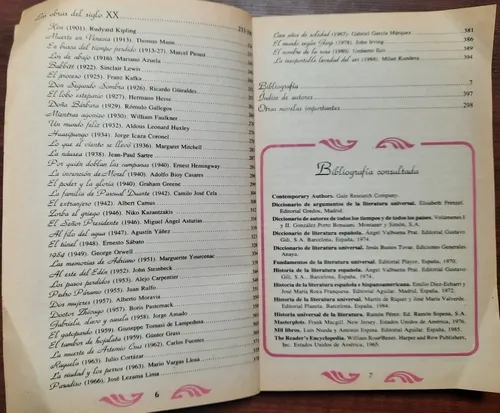 Las obras del siglo XX
Kim (1901). Rudyard Kipling
Muerte en Venecia (1913). Thomas Mann
En busca del tiempo perdido (1913-27). Marcel Proust
Los de abajo (1916). Mariano Azuela
Babbitt (1922). Sinclair Lewis
El proceso (1925). Franz Kafka
Don Segundo Sombra (1926). Ricardo Güiraldes
El lobo estepario (1927). Hermann Hesse
Doña Bárbara (1929). Rómulo Gallegos
Mientras agonizo (1930). William Faulkner
Un mundo feliz (1932). Aldous Leonard Huxley
Huasipungo (1934). Jorge Icaza Coronel
Lo que el viento se llevó (1936). Margaret Mitchell
La náusea (1938). Jean-Paul Sartre
Por quién doblan las campanas (1940). Ernest Hemingway
La invención de Morel (1940). Adolfo Bioy Casares
El poder y la gloria (1940). Graham Greene
La familia de Pascual Duarte (1942). Camilo José Cela
El extranjero (1942). Albert Camus
Zorba el griego (1946). Niko Kazantzakis
El Señor Presidente (1946). Miguel Angel Asturias
Al filo del agua (1947). Agustín Yáñez
El túnel (1948). Ernesto Sábato
1984 (1949). George Orwell
Las memorias de Adriano (1951). Marguerite Yourcenar
Al este del Edén (1952). John Steinbeck
Los pasos perdidos (1953). Alejo Carpentier
Pedro Páramo (1955). Juan Rulfo
Dos mujeres (1957). Alberto Moravia
Doctor Zhivago (1957). Boris Pasternack
Gabriela, clavo y canela (1958). Jorge Amado
El gatopardo (1958). Giuseppe Tomasi de Lampedusa
El tambor de hojalata (1959). Günter Grass
La muerte de Artemio Cruz (1962). Carlos Fuentes
Rayuela (1963). Julio Cortázar
La ciudad y los perros (1963). Mario Vargas Llosa
Paradiso (1966). José Lezama Lima
6
Cien años de soledad (1967). Gabriel García Márquez 381
El mundo según Garp (1978). John Irving 386
El nombre de la rosa (1980). Umberto Eco 389
La insoportable levedad del ser (1984). Milan Kundera 394
Bibliografía 7
Indice de autores 397
Otras novelas importantes 298
Bibliografía consultada
Contemporary Authors. Gale Research Company.
Diccionario de argumentos de la literatura universal. Elizabeth Frenzel.
Editorial Gredos, Madrid.
Diccionario de autores de todos los tiempos y de todos los países. Volúmenes I
y II. González Porto Bompiani. Montaner y Simón, S.A.
Diccionario de la literatura española. Angel Valbuena Prat. Editorial Gustavo
Gili, S.A. Barcelona, España, 1974.
Diccionario de literatura universal. Jesús Bustos Tovar. Ediciones Generales
Anaya.
Fundamentos de la literatura universal. Editorial Playor. España, 1970.
Historia de la literatura española. Angel Valbuena Prat. Editorial Gustavo
Gili, S.A. Barcelona, España, 1974.
Historia de la literatura española e hispanoamericana. Emiliano Díez-Echarri y
José María Roca Franquesa. Editorial Aguilar. Madrid, España, 1972.
Historia de la literatura universal. Martín de Riquer y José María Valverde.
Editorial Planeta. Barcelona, España, 1984.
Historia universal de la literatura. Ramón Pérez. Ed. Ramón Sopena, S.A.
Masterplots. Frank Macgill. New Jersey, Estados Unidos de América, 1976.
Mil libros. Luis Nueda y Antonio Espina. Editorial Aguilar. España, 1985.
The Reader's Encyclopedia. William RoseBenet. Harper and Row Publishers,
Inc. Estados Unidos de América, 1965.
7